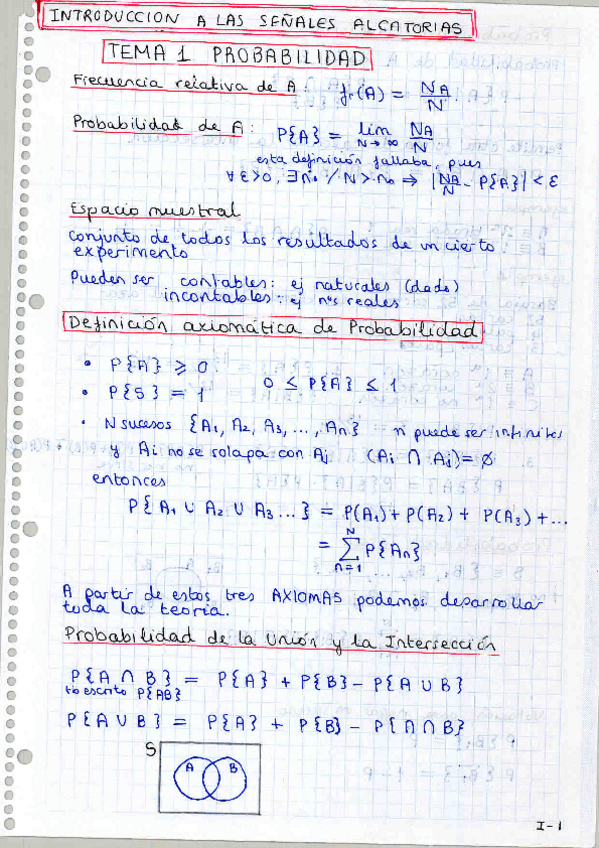 INTRODUCCION A LAS SEÑALES ALCATORIAS
TEMA 1 PROBABILIDAD
Frecuencia relativa de A: fr(A) = NA/N
Probabilidad de A: P{A} = lim N→∞ NA/N
esta definición fallaba, pues
∀ ε>0, ∃ n₀ / N > n₀ ⇒ |NA/N - P{A}| < ε
Espacio muestral
Conjunto de todos los resultados de un cierto
experimento
Pueden ser contables: ej naturales (dado)
incontables: ej nºs reales
Definición axiomática de Probabilidad
• P{A} ⩾ 0
• P{S} = 1 0 ≤ P{A} ≤ 1
• N sucesos {A₁, A₂, A₃, ..., An} n puede ser infinitos
y Ai no se solapa con Aj (Ai ∩ Aj) = ∅
entonces
P{A₁ ∪ A₂ ∪ A₃ ...} = P(A₁) + P(A₂) + P(A₃) + ...
= ∑ n=1 N P{An}
A partir de estos tres AXIOMAS podemos desarrollar
toda la teoría.
Probabilidad de la Unión y la Intersección
P{A ∩ B} = P{A} + P{B} - P{A ∪ B}
tb escrito P{AB}
P{A ∪ B} = P{A} + P{B} - P{A ∩ B}
S
A B
I-1